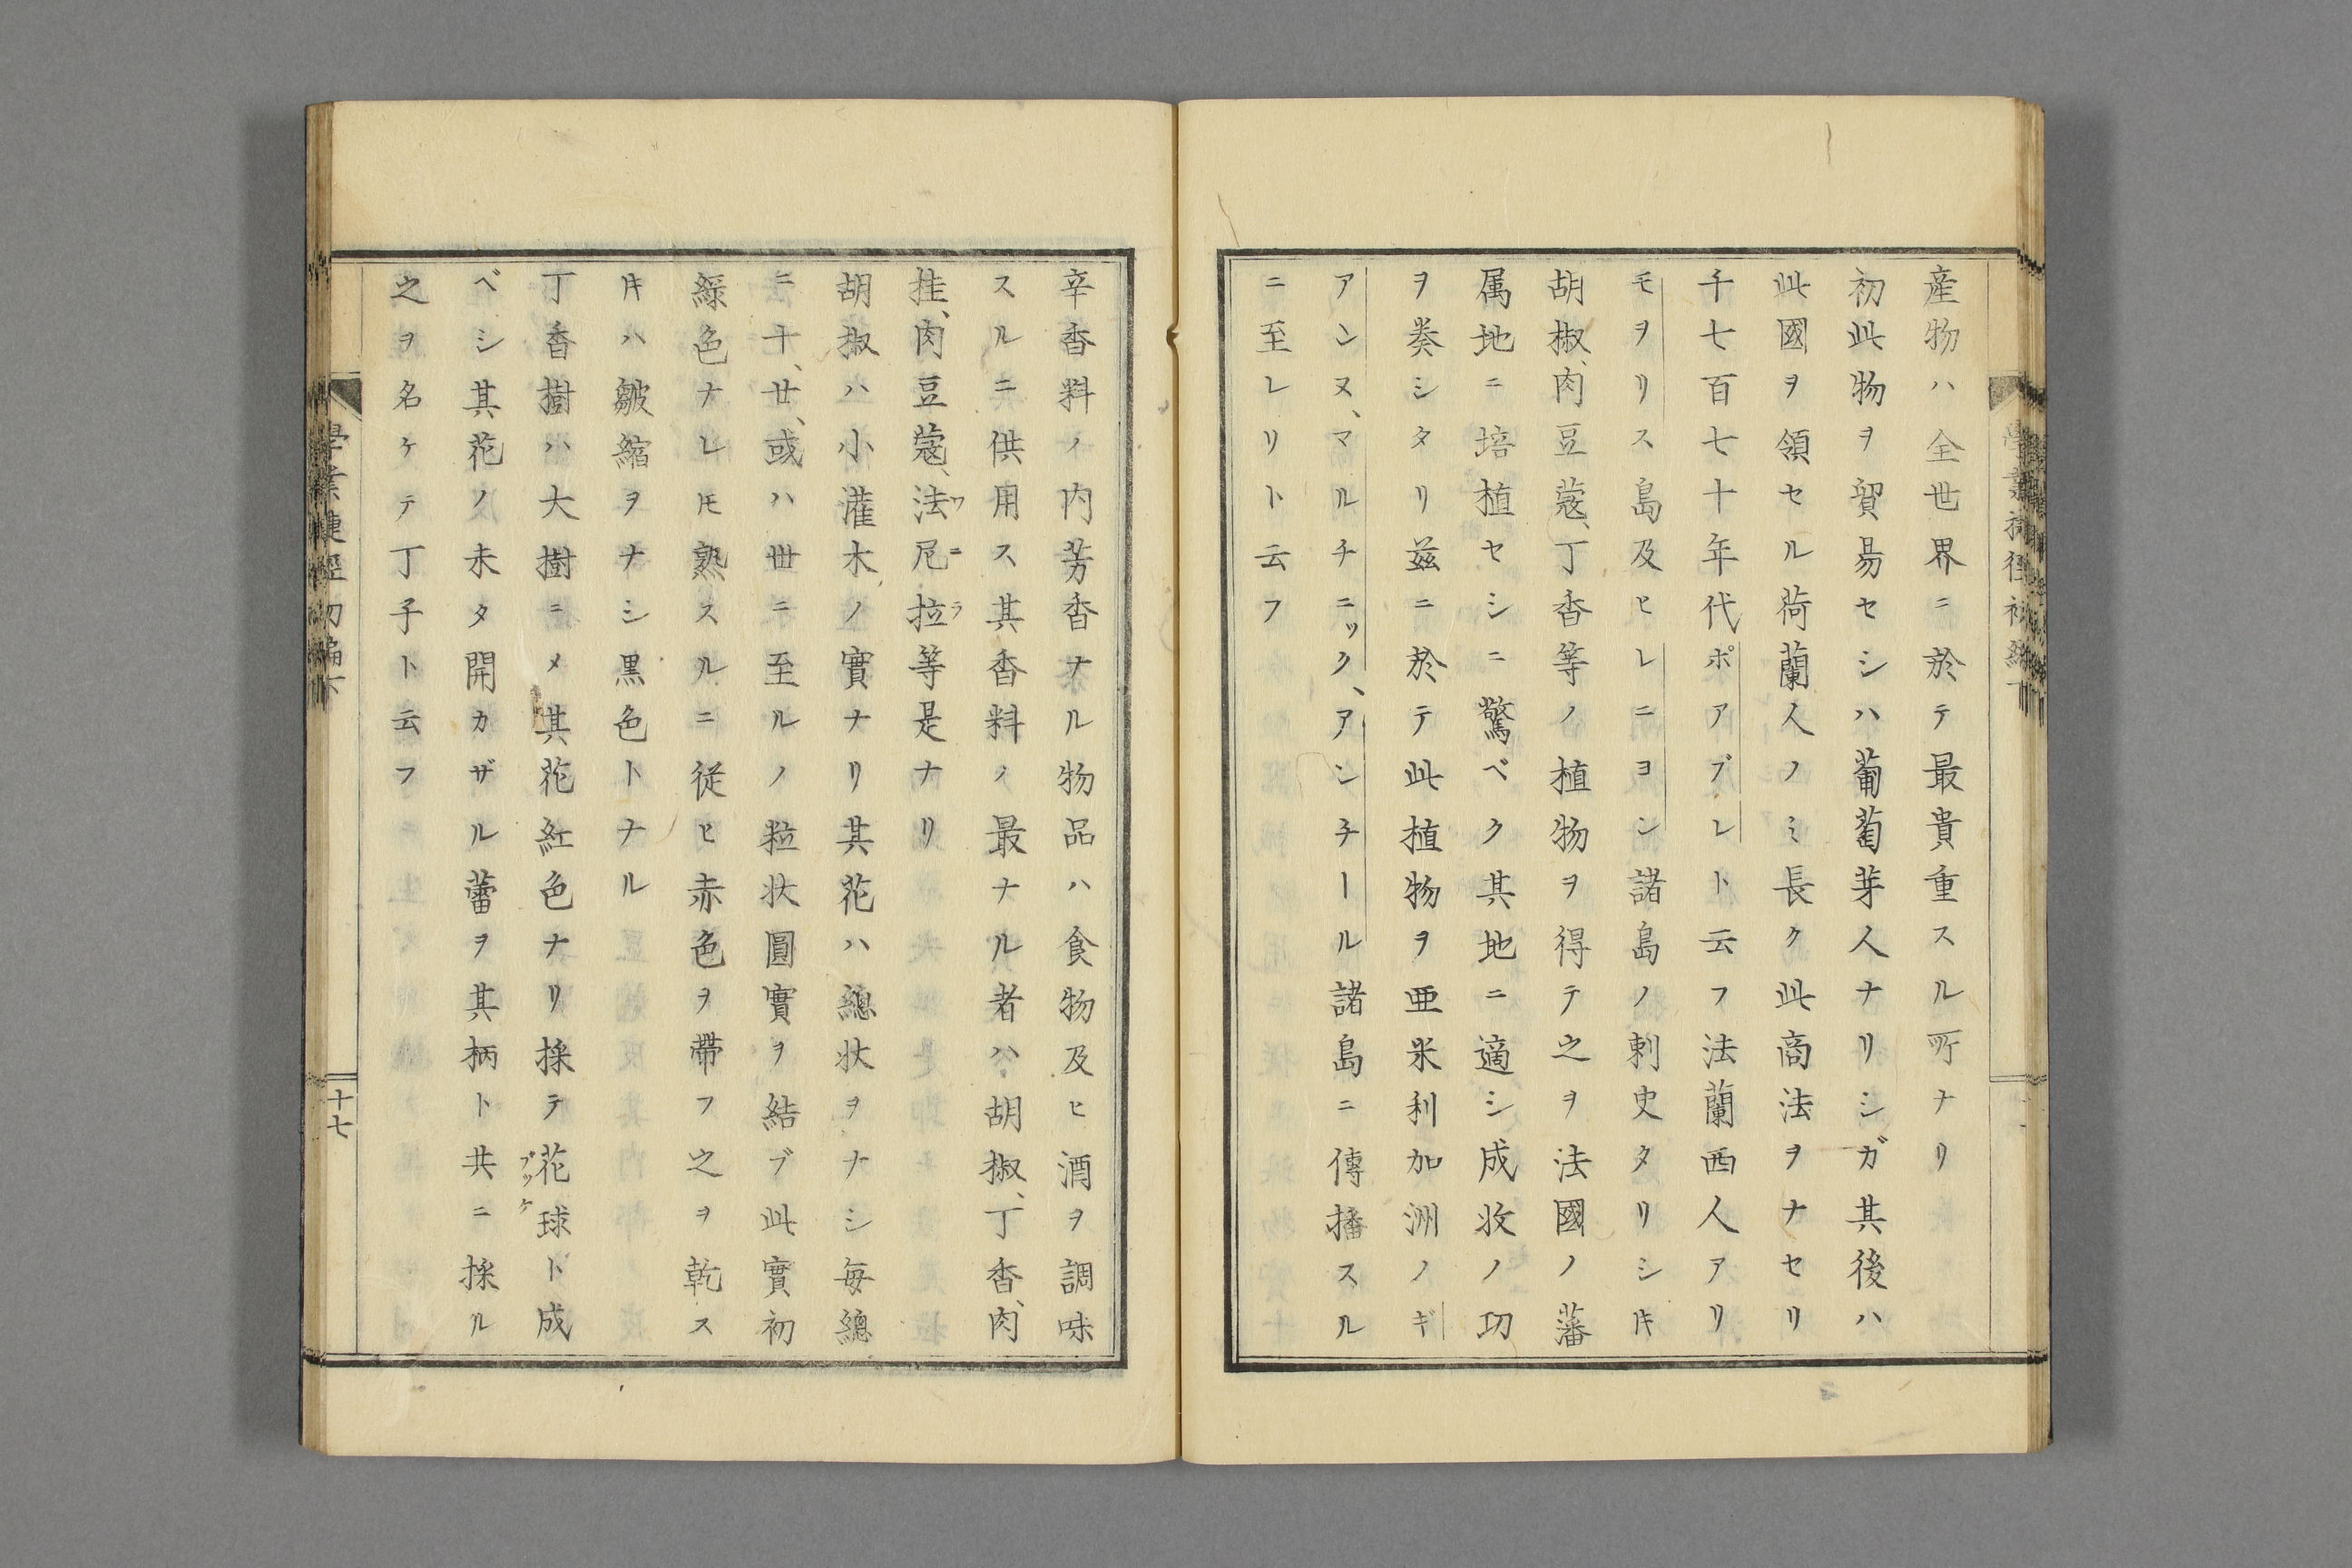 産物ハ全世界ニ於テ最貴重スル所ナリ
初此物ヲ貿易セシハ葡萄芽人ナリシガ其後ハ
此國ヲ領セル荷蘭人ノミ長ク此商法ヲナセリ
千七百七十年代ポアブレト云フ法蘭西人アリ
モヲリス島及ヒレニヨン諸島ノ刺史タリシ𪜈
胡椒、肉豆蔲、丁香等ノ植物ヲ得テ之ヲ法國ノ藩
属地ニ培植セシニ驚ベク其地ニ適シ成收ノ功
ヲ奏シタリ茲ニ於テ此植物ヲ亜米利加洲ノギ
アンヌ、マルチニック、アンチール諸島ニ傳播スル
ニ至レリト云フ
辛香料ノ内芳香ナル物品ハ食物及ヒ酒ヲ調味
スルニ供用ス其香料ノ最ナル者ハ胡椒、丁香、肉
桂、肉豆蔲、法尼拉等是ナリ
ワニラ
胡椒ハ小灌木ノ實ナリ其花ハ總状ヲナシ毎總
ニ十、廿、或ハ丗ニ至ルノ粒状圓實ヲ結ブ此實初
綠色ナレ𪜈熟スルニ從ヒ赤色ヲ帶フ之ヲ乾ス
𪜈ハ皺縮ヲナシ黒色トナル
丁香樹ハ大樹ニメ其花紅色ナリ採テ花球ト成
ブッケ
ベシ其花ノ未タ開カザル蕾ヲ其柄ト共ニ採ル
之ヲ名ケテ丁子ト云フ
學業捷徑初編下
十七